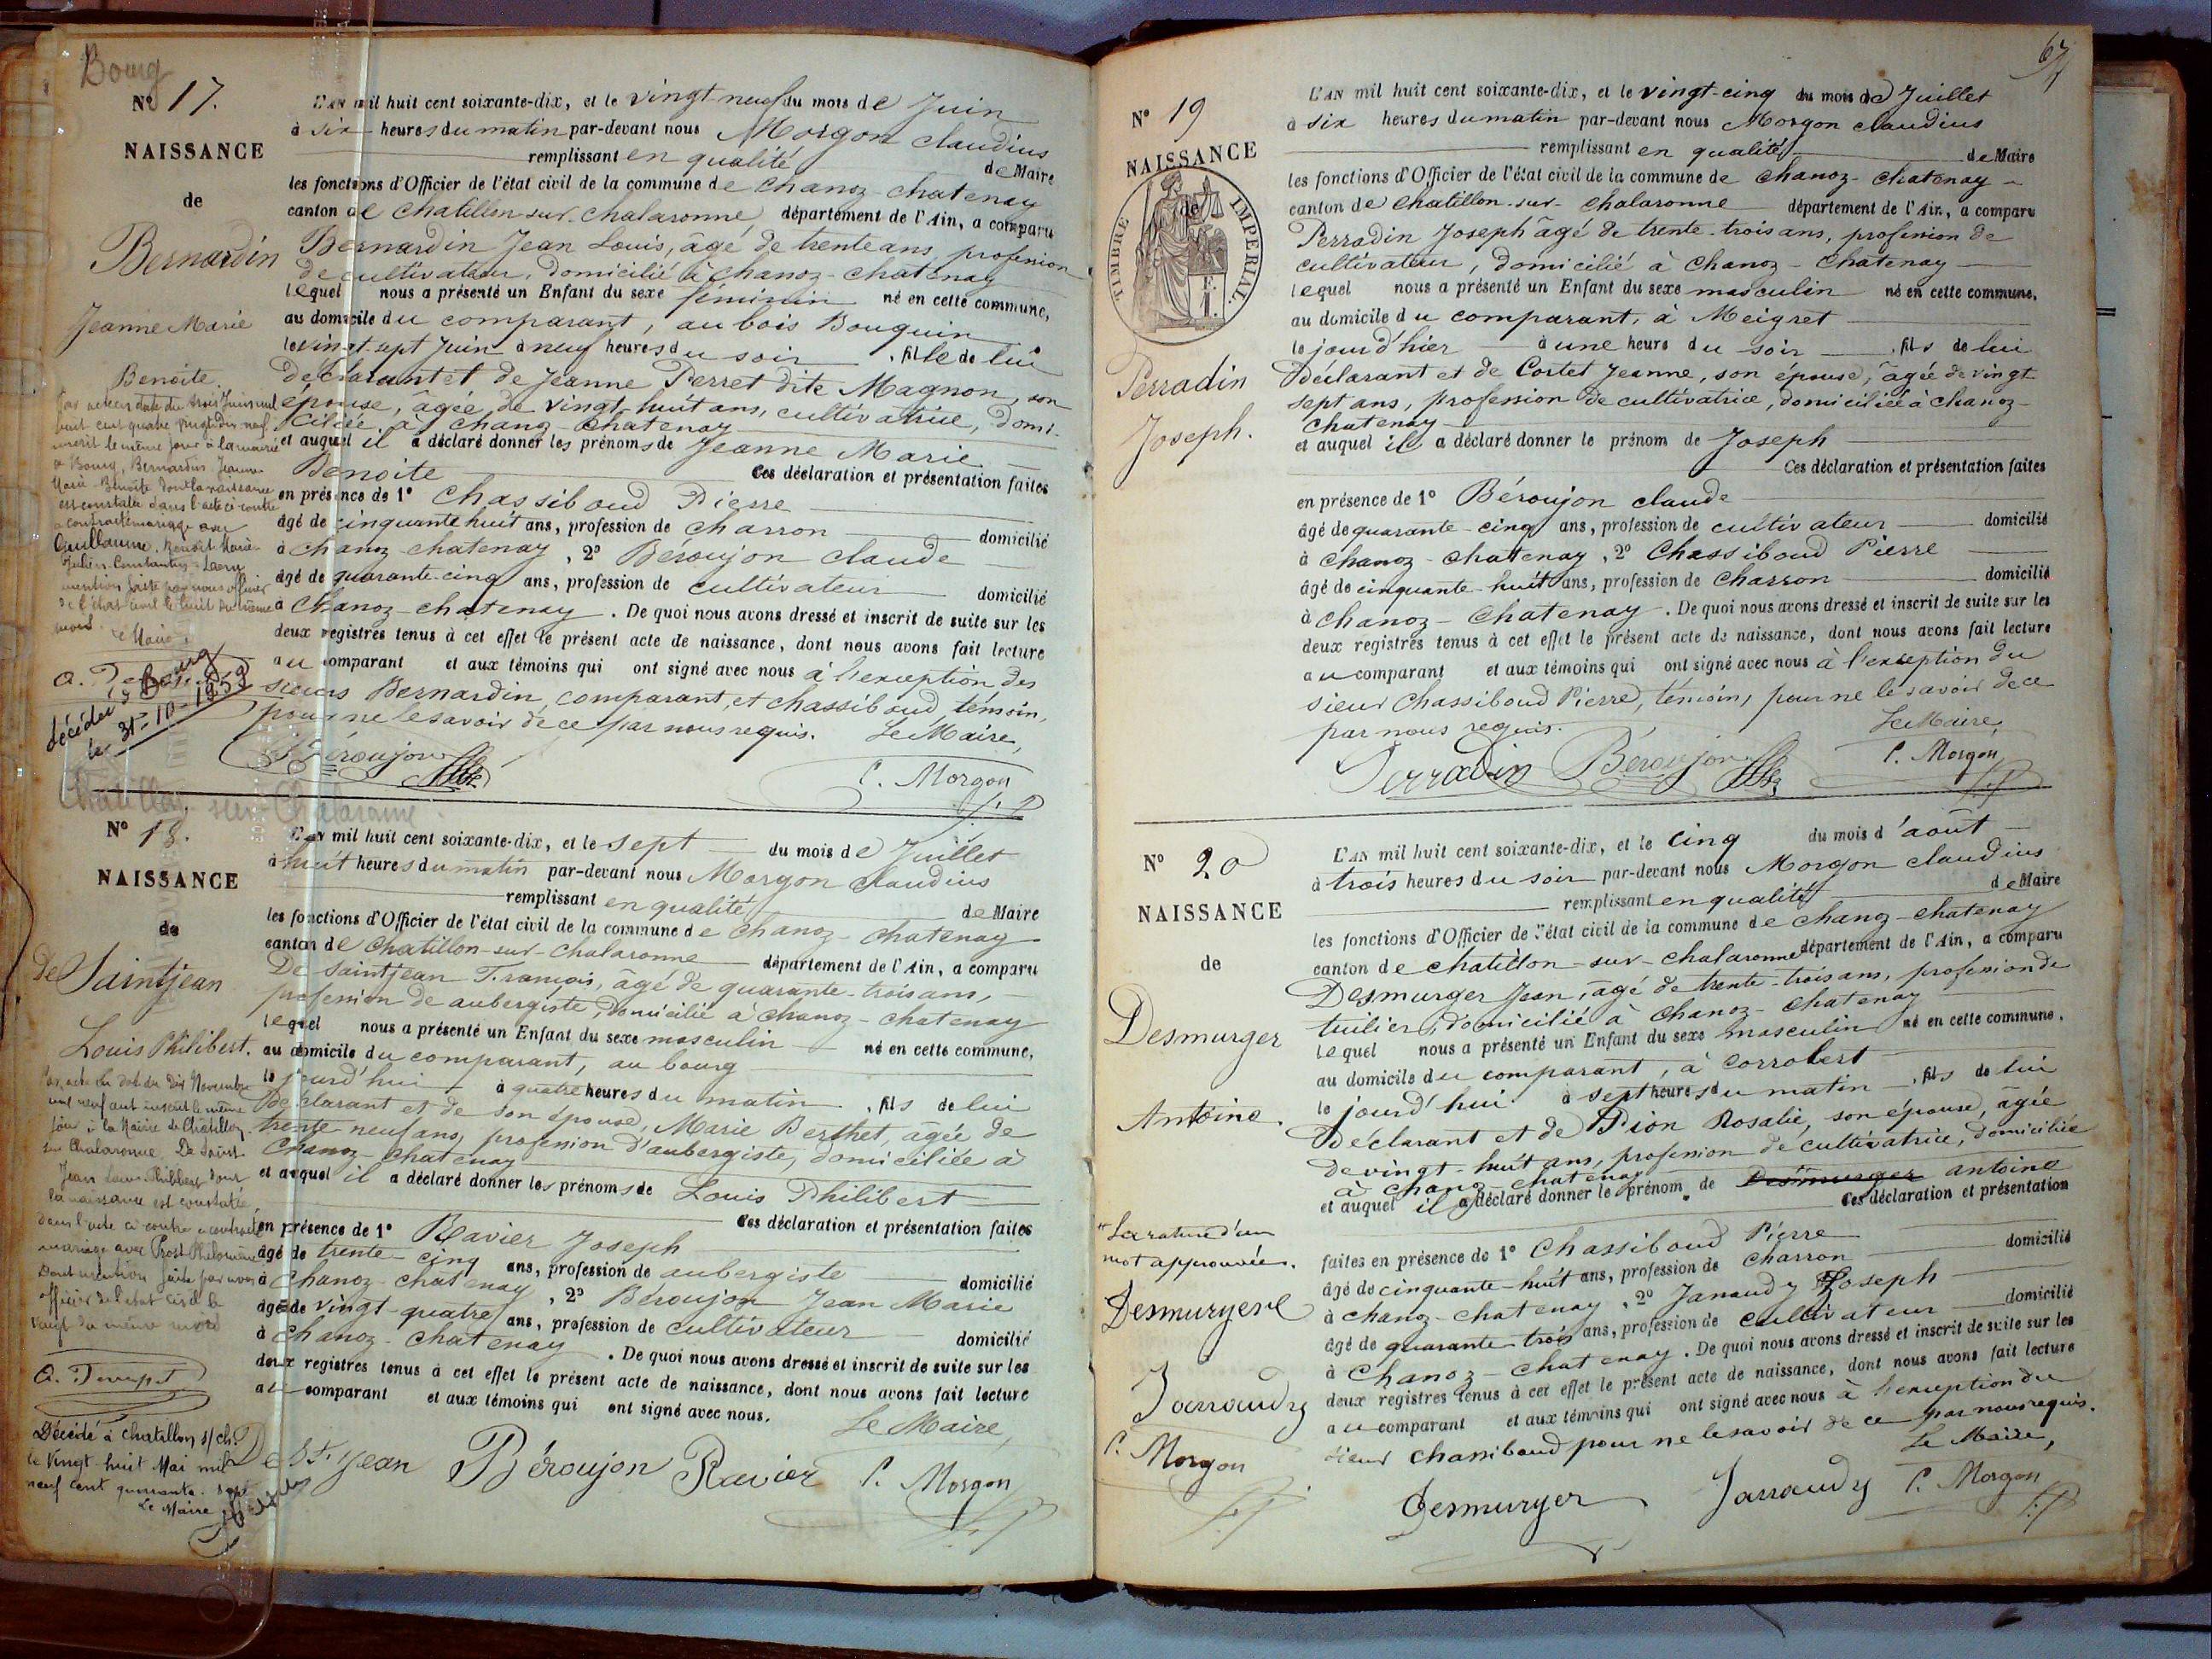 Bourg
N° 17.
NAISSANCE
de
Bernardin
Jeanne Marie
Benoite
Par acte en date du trois Juin mil
huit cent quatre vingt dix neuf
inscrit le même jour à la mairie
de Bourg, Bernardin Jeanne
Marie Benoite dont la naissance
est constatée dans l'acte ci-contre
a contracté mariage avec
Guillaume, Benoît Marie
mention faite par nous officier
de l'état civil le huit du même
mois.
Le Maire,
décédée à Bourg
le 31-10-1959
L'AN mil huit cent soixante-dix, et le vingt neuf du mois de Juin
à six heures du matin par-devant nous Morgon claudius
remplissant en qualité de Maire
les fonctions d'Officier de l'état civil de la commune de Chanoz-chatenay
canton de Chatillon-sur-chalaronne département de l'Ain, a comparu
Bernardin Jean Louis, âgé de trente ans, profession
de cultivateur, domicilié à chanoz-chatenay
lequel nous a présenté un Enfant du sexe féminin né en cette commune,
au domicile du comparant, au bois Bouquin
le vingt-sept Juin à neuf heures du soir , fille de lui
déclarant et de Jeanne Perret dite Magnon, son
épouse, âgée de vingt huit ans, cultivatrice, domi-
ciliée à chanoz-chatenay
et auquel il a déclaré donner les prénoms de Jeanne Marie
Benoite Ces déclaration et présentation faites
en présence de 1° Chassiboud Pierre
âgé de cinquante huit ans, profession de charron domicilié
à chanoz chatenay, 2° Béroujon claude
âgé de quarante-cinq ans, profession de cultivateur domicilié
à Chanoz-chatenay. De quoi nous avons dressé et inscrit de suite sur les
deux registres tenus à cet effet le présent acte de naissance, dont nous avons fait lecture
au comparant et aux témoins qui ont signé avec nous à l'exception des
sieurs Bernardin, comparant, et chassiboud, témoin,
pour ne le savoir de ce par nous requis. Le Maire,
Béroujon
C. Morgon
Chatillon sur Chalaronne
N° 18.
NAISSANCE
de
De Saintjean
Louis Philibert.
Par acte en date du dix Novembre
mil neuf cent inscrit le même
jour à la Mairie de Chatillon
sur Chalaronne De Saint
Jean Louis Philibert dont
la naissance est constatée
dans l'acte ci-contre a contracté
mariage avec Prost Philomène
Dont mention faite par nous
officier de l'état civil le
vingt du même mois
Décédé à Chatillon s/ch.
le Vingt huit Mai mil
neuf cent quarante sept
Le Maire
L'AN mil huit cent soixante-dix, et le sept du mois de Juillet
à huit heures du matin par-devant nous Morgon claudius
remplissant en qualité de Maire
les fonctions d'Officier de l'état civil de la commune de Chanoz-chatenay
canton de Chatillon-sur-chalaronne département de l'Ain, a comparu
De Saintjean François, âgé de quarante-trois ans,
profession de aubergiste, domicilié à chanoz-chatenay
lequel nous a présenté un Enfant du sexe masculin né en cette commune,
au domicile du comparant, au bourg
le jourd'hui à quatre heures du matin , fils de lui
Déclarant et de son épouse, Marie Berthet, âgée de
trente neuf ans, profession d'aubergiste, domiciliée à
Chanoz-chatenay
et auquel il a déclaré donner les prénoms de Louis Philibert
Ces déclaration et présentation faites
en présence de 1° Ravier Joseph
âgé de trente-cinq ans, profession de aubergiste domicilié
à Chanoz-chatenay, 2° Béroujon Jean Marie
âgé de vingt-quatre ans, profession de cultivateur domicilié
à Chanoz-chatenay. De quoi nous avons dressé et inscrit de suite sur les
deux registres tenus à cet effet le présent acte de naissance, dont nous avons fait lecture
au comparant et aux témoins qui ont signé avec nous.
Le Maire,
De St Jean Béroujon Ravier C. Morgon
67
N° 19
NAISSANCE
de
TIMBRE IMPERIAL.
Perradin
Joseph.
L'AN mil huit cent soixante-dix, et le vingt-cinq du mois de Juillet
à six heures du matin par-devant nous Morgon claudius
remplissant en qualité de Maire
les fonctions d'Officier de l'état civil de la commune de Chanoz-chatenay
canton de Chatillon-sur-chalaronne département de l'Ain, a comparu
Perradin Joseph âgé de trente-trois ans, profession de
cultivateur, domicilié à Chanoz-Chatenay
lequel nous a présenté un Enfant du sexe masculin né en cette commune,
au domicile du comparant, à Meigret
le jour d'hier à une heure du soir , fils de lui
Déclarant et de Cortet Jeanne, son épouse, âgée de vingt
sept ans, profession de cultivatrice, domiciliée à chanoz-
chatenay
et auquel il a déclaré donner le prénom de Joseph
Ces déclaration et présentation faites
en présence de 1° Béroujon claude
âgé de quarante-cinq ans, profession de cultivateur domicilié
à chanoz-chatenay, 2° Chassiboud Pierre
âgé de cinquante-huit ans, profession de Charron domicilié
à chanoz-chatenay. De quoi nous avons dressé et inscrit de suite sur les
deux registres tenus à cet effet le présent acte de naissance, dont nous avons fait lecture
au comparant et aux témoins qui ont signé avec nous à l'exception du
sieur Chassiboud Pierre, témoin, pour ne le savoir de ce
par nous requis. Le Maire,
Perradin Béroujon C. Morgon
N° 20
NAISSANCE
de
Desmurger
Antoine.
La rature d'un
mot approuvée.
Desmurger
Janaudy
C. Morgon
L'AN mil huit cent soixante-dix, et le cinq du mois d'août
à trois heures du soir par-devant nous Morgon claudius
remplissant en qualité de Maire
les fonctions d'Officier de l'état civil de la commune de Chanoz-chatenay
canton de chatillon-sur-chalaronne département de l'Ain, a comparu
Desmurger Jean, âgé de trente-trois ans, profession de
tuilier, domicilié à Chanoz-chatenay
lequel nous a présenté un Enfant du sexe masculin né en cette commune,
au domicile du comparant, à corrobert
le jourd'hui à sept heures du matin , fils de lui
Déclarant et de Pion Rosalie, son épouse, âgée
de vingt-huit ans, profession de cultivatrice, domiciliée
à chanoz-chatenay
et auquel il a déclaré donner le prénom de Desmurger antoine
Ces déclaration et présentation
faites en présence de 1° Chassiboud Pierre
âgé de cinquante-huit ans, profession de charron domicilié
à chanoz-chatenay, 2° Janaudy Joseph
âgé de quarante-trois ans, profession de cultivateur domicilié
à Chanoz-chatenay. De quoi nous avons dressé et inscrit de suite sur les
deux registres tenus à cet effet le présent acte de naissance, dont nous avons fait lecture
au comparant et aux témoins qui ont signé avec nous à l'exception du
sieur chassiboud pour ne le savoir de ce par nous requis.
Le Maire,
Desmurger Janaudy C. Morgon